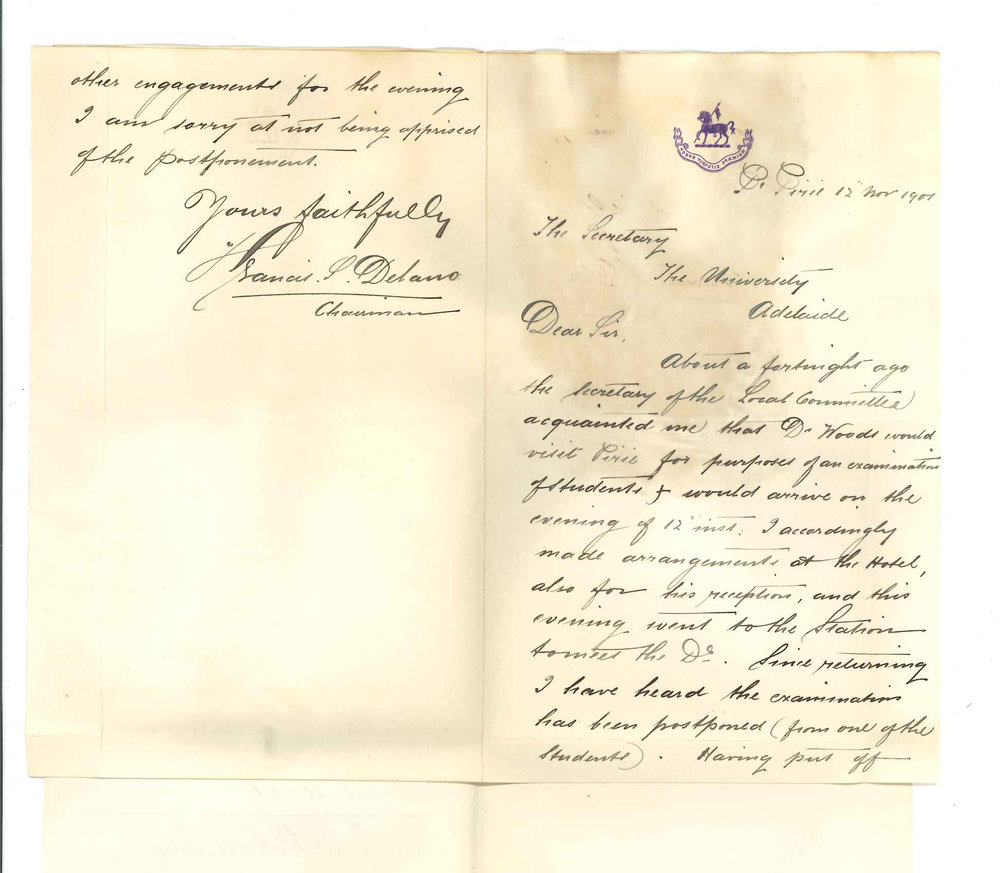 Pt Pirie 12 Nov 1901
The Secretary
The University
Adelaide
Dear Sir,
About a fortnight ago
the secretary of the Local Committee
acquainted me that Dr Woods would
visit Pirie for purposes of an examination
of students & would arrive on the
evening of 12 inst. I accordingly
made arrangements at the Hotel,
also for his reception, and this
evening went to the Station
to meet the Dr. Since returning
I have heard the examination
has been postponed (from one of the
Students). Having put off
other engagements for the evening
I am sorry at not being apprised
of the postponement.
Yours faithfully
Francis. S. Delano
Chairman